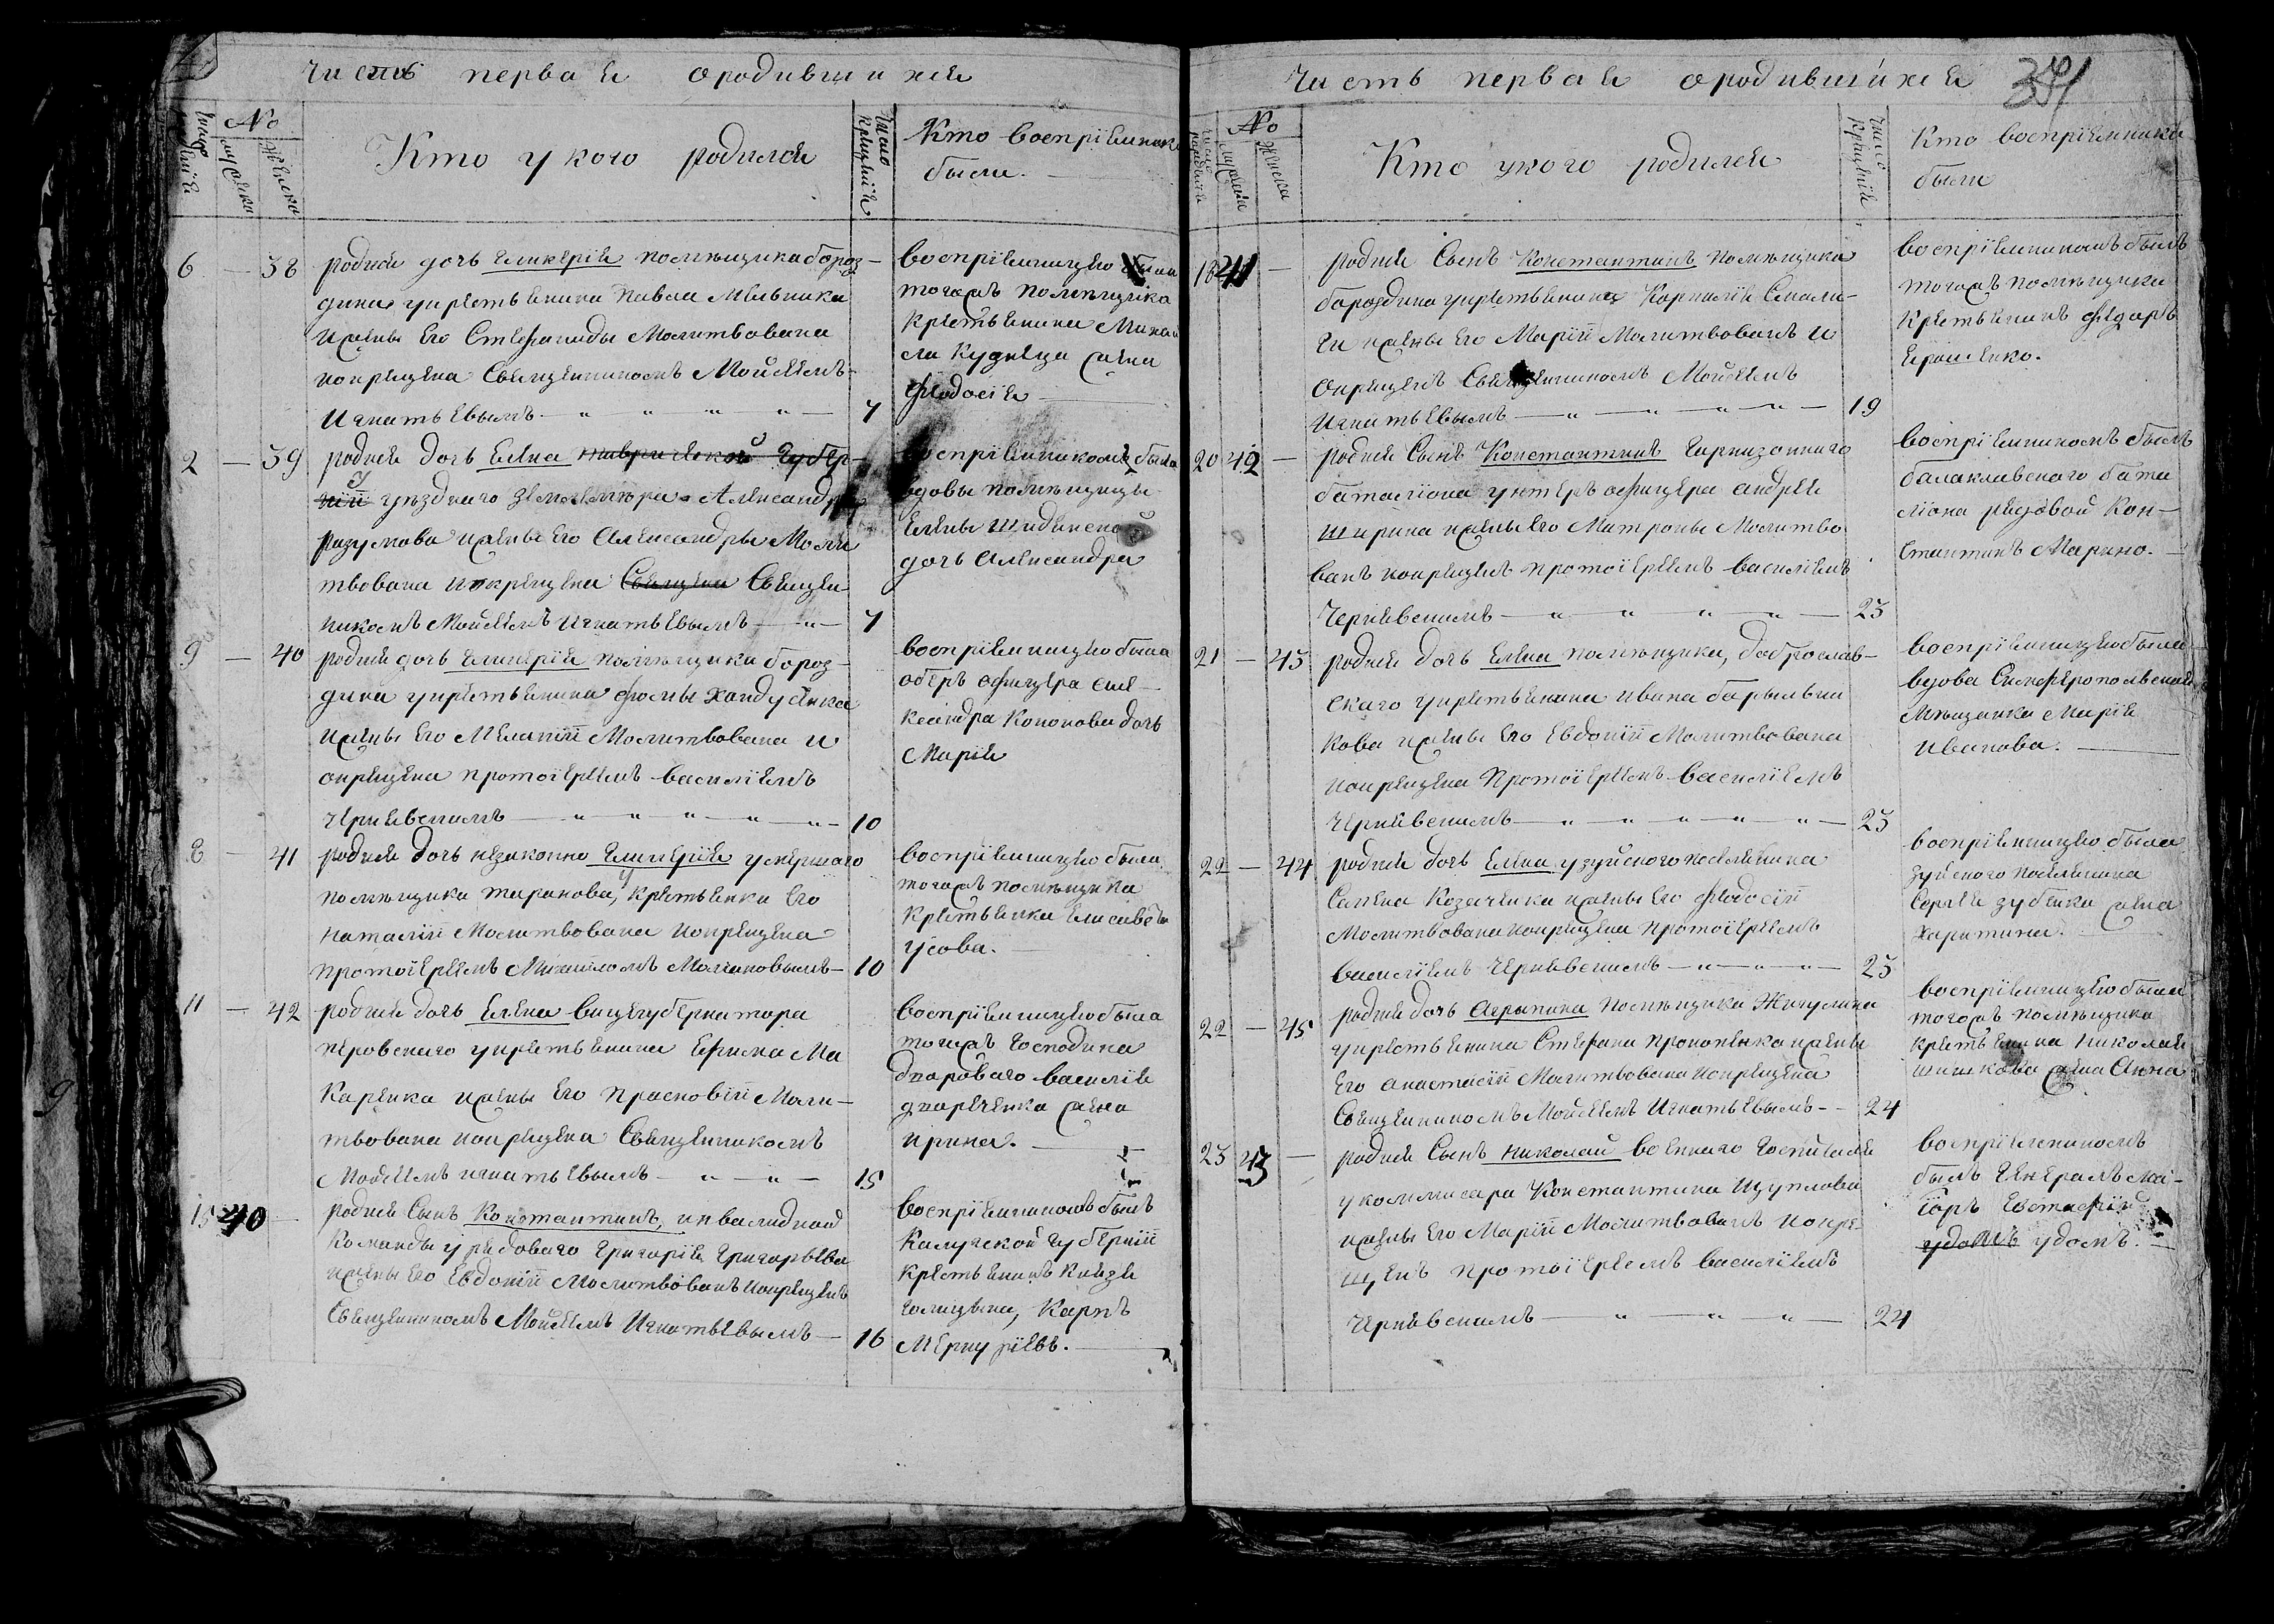 Часть первая ородившихся
Число рожденія
№
мужеска
женска
Кто у кого родился
Число крещенія
Кто воспріемники
были.
6 — 38 родися дочь Гликерія помѣщика бороз-
дина укрестьянина Павла Мельника
ижены Его Стефаниды Молитвована
иокрещена Священникомъ Мойсеемъ
Игнатьевымъ — 7
воспріемницею была
тогожъ помѣщика
крестьянина Михаи
ла Кузнеца жена
Феодосія
2 — 39 родися дочь Елена таврической Губер-
ніи уѣзднаго землемѣра Александра
разумова ижены Его Александры Моли
твована иокрещена Священа Священ
никомъ Мойсеемъ Игнатьевымъ — 7
воспріемникомъ была
вдовы помѣщицы
Елены Шидянской
дочь Александра
9 — 40 родися дочь Гликерія помѣщика бороз-
дина укрестьянина Фомы
ижены Его Меланіи Молитвована и
окрещена протоіереемъ василіемъ
Чернявскимъ — 10
воспріемницею была
оберъ офицера Але-
ксандра Кононова дочь
Марія
8 — 41 родися дочь незаконно Гликерія умершаго
помѣщика таранова, у крестьянки Его
наталіи Молитвована иокрещена
протоіереемъ Михаиломъ Молчановымъ — 10
воспріемницею была
тогожъ помѣщика
Крестьянка Елисавета
Усова.
11 — 42 родися дочь Елена вицегубернатора
перовскаго укрестьянина Ефима Ма
каренка ижены Его Прасковіи Моли-
твована иокрещена Священникомъ
Мойсеемъ игнатьевымъ — 15
воспріемницею была
тогожъ Господина
двороваго василія
жена
ирина.
15 40 родися Сынъ Константинъ, инвалидной
Команды у рядоваго Григорія Григорьева
ижены Его Евдокіи Молитвованъ иокрещенъ
Священникомъ Мойсеемъ Игнатьевымъ — 16
воспріемникомъ былъ
Калужской Губерніи
крестьянинъ Князя
Голицына, Карпъ
Меркуріевъ.
Часть первая ородившихся
341
Число рожденія
№
мужеска
женска
Кто укого родился
Число крещенія
Кто воспріемники
были
18 41 — родися Сынъ Константинъ помѣщика
бороздина укрестьянина Корнилія Смали-
ги ижены Его Маріи Молитвованъ и
Окрещенъ Священникомъ Мойсеемъ
Игнатьевымъ — 19
воспріемникомъ былъ
тогожъ помѣщика
Крестьянинъ Федоръ
Ерошенко.
20 42 — родися Сынъ Константинъ Гарнизоннаго
баталіона унтеръ офицера Андрея
Ширина ижены Его Матроны Молитво
ванъ иокрещенъ протоіереемъ василіемъ
Чернявскимъ — 23
воспріемникомъ былъ
балаклавскаго бата
ліона рядовой Кон-
стантинъ Марино.
21 — 43 родися дочь Елена помѣщика, доброслав-
скаго укрестьянина ивана барыльни
кова ижены Его Евдокіи Молитвована
иокрещена Протоіереемъ василіемъ
Чернявскимъ — 23
воспріемницею была
вдова Симферопольская
Мѣщанка Марія
Иванова.
22 — 44 родися дочь Елена узуйского поселянина
Семена Козаченка ижены Его Феодосіи
Молитвована иокрещена протоіереемъ
василіемъ Чернявскимъ — 23
воспріемницею была
зуйского поселянина
Сергея зубенка жена
харитина.
22 — 45 родися дочь Агрыпина помѣщика Жигулина
укрестьянина Стефана Прокопенка ижены
Его Анастасіи Молитвована иокрещена
Священникомъ Мойсеемъ Игнатьевымъ — 24
воспріемницею была
тогожъ помѣщика
крестьянина Николая
шишкова жена Анна
23 43 — родися Сынъ николай военнаго Госпиталя
укоммисара Константина Щуплова
ижены Его Маріи Молитвованъ иокре
щенъ протоіереемъ василіемъ
Чернявскимъ — 24
воспріемникомъ
былъ Генералъ Ма-
іоръ Евстафій
удомъ удомъ.